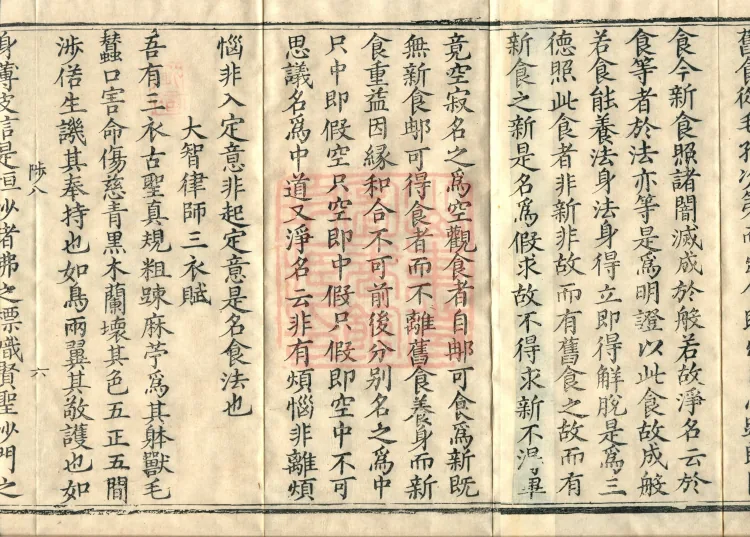 食今新食照諸闇滅成於般若故淨名云於
食等者於法亦等是爲明證以此食故成般
若食能養法身法身得立即得解脫是爲三
德照此食者非新非故而有舊食之故而有
新食之新是名爲假求故不得求新不得畢
竟空寂名之爲空觀食者自那可食爲新既
無新食那可得食者而不離舊食養身而新
食重益因縁和合不可前後分別名之爲中
只中即假空只空即中假只假即空中不可
思議名爲中道又淨名云非有煩惱非離煩
惱非入定意非起定意是名食法也
大智律師三衣賦
吾有三衣古聖真規粗踈麻苧爲其躰獸毛
蠶口害命傷慈青黑木蘭壞其色五正五間
涉俗生譏其奉持也如鳥兩翼其敬護也如
陟八
六
身薄皮信是恒沙諸佛之摽幟賢聖沙門之